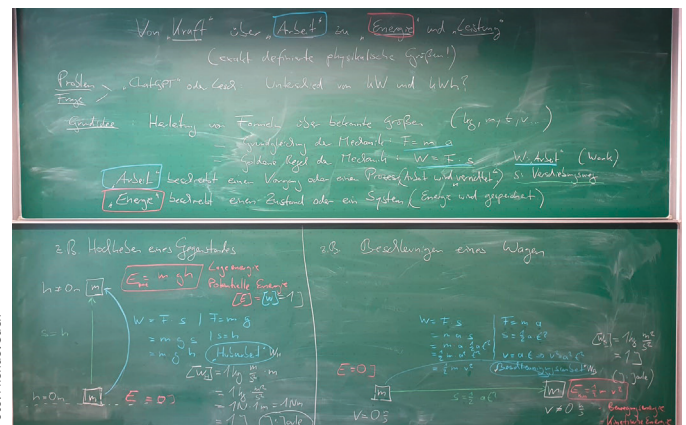 Von „Kraft" über „Arbeit" zu „Energie" und „Leistung"
(exakt definierte physikalische Größen!)
Problem
Frage
"ChatGPT" oder Lead: Unterschied von kW und kWh?
Grundidee: Herleitung von Formeln über bekannte Größen (kg, m, s, v...)
Grundgleichung der Mechanik: F = m a
Goldene Regel der Mechanik: W = F · s W: Arbeit (Work)
„Arbeit" beschreibt einen Vorgang oder einen Prozess (Arbeit wird verrichtet) s: Verschiebungsweg
„Energie" beschreibt einen Zustand oder ein System (Energie wird gespeichert)
z.B. Hochheben eines Gegenstandes
E = m g h
Lageenergie
Potentielle Energie
[E] = [W] = 1 J
h≠0m m
s = h
h=0m m
E = 0 J
W = F · s | F = m g
= m g s | s = h
= m g h „Hubarbeit"
= 1 kg m/s² · m
= 1 kg m²/s²
= 1 N · 1 m = 1 Nm
= 1 J „Joule"
z.B. Beschleunigen eines Wagen
W = F s | F = m a
= m a s | s = ½ a t²
= m a ½ a t²
= ½ m a² t² | v = a t → v² = a² t²
= ½ m v² „Beschleunigungsarbeit"
= 1 kg m²/s²
= 1 J
(J: Joule)
E = 0 J
m
v = 0 m/s
s = ½ a t²
m
v ≠ 0 m/s
E = ½ m v²
Bewegungsenergie
Kinetische Energie